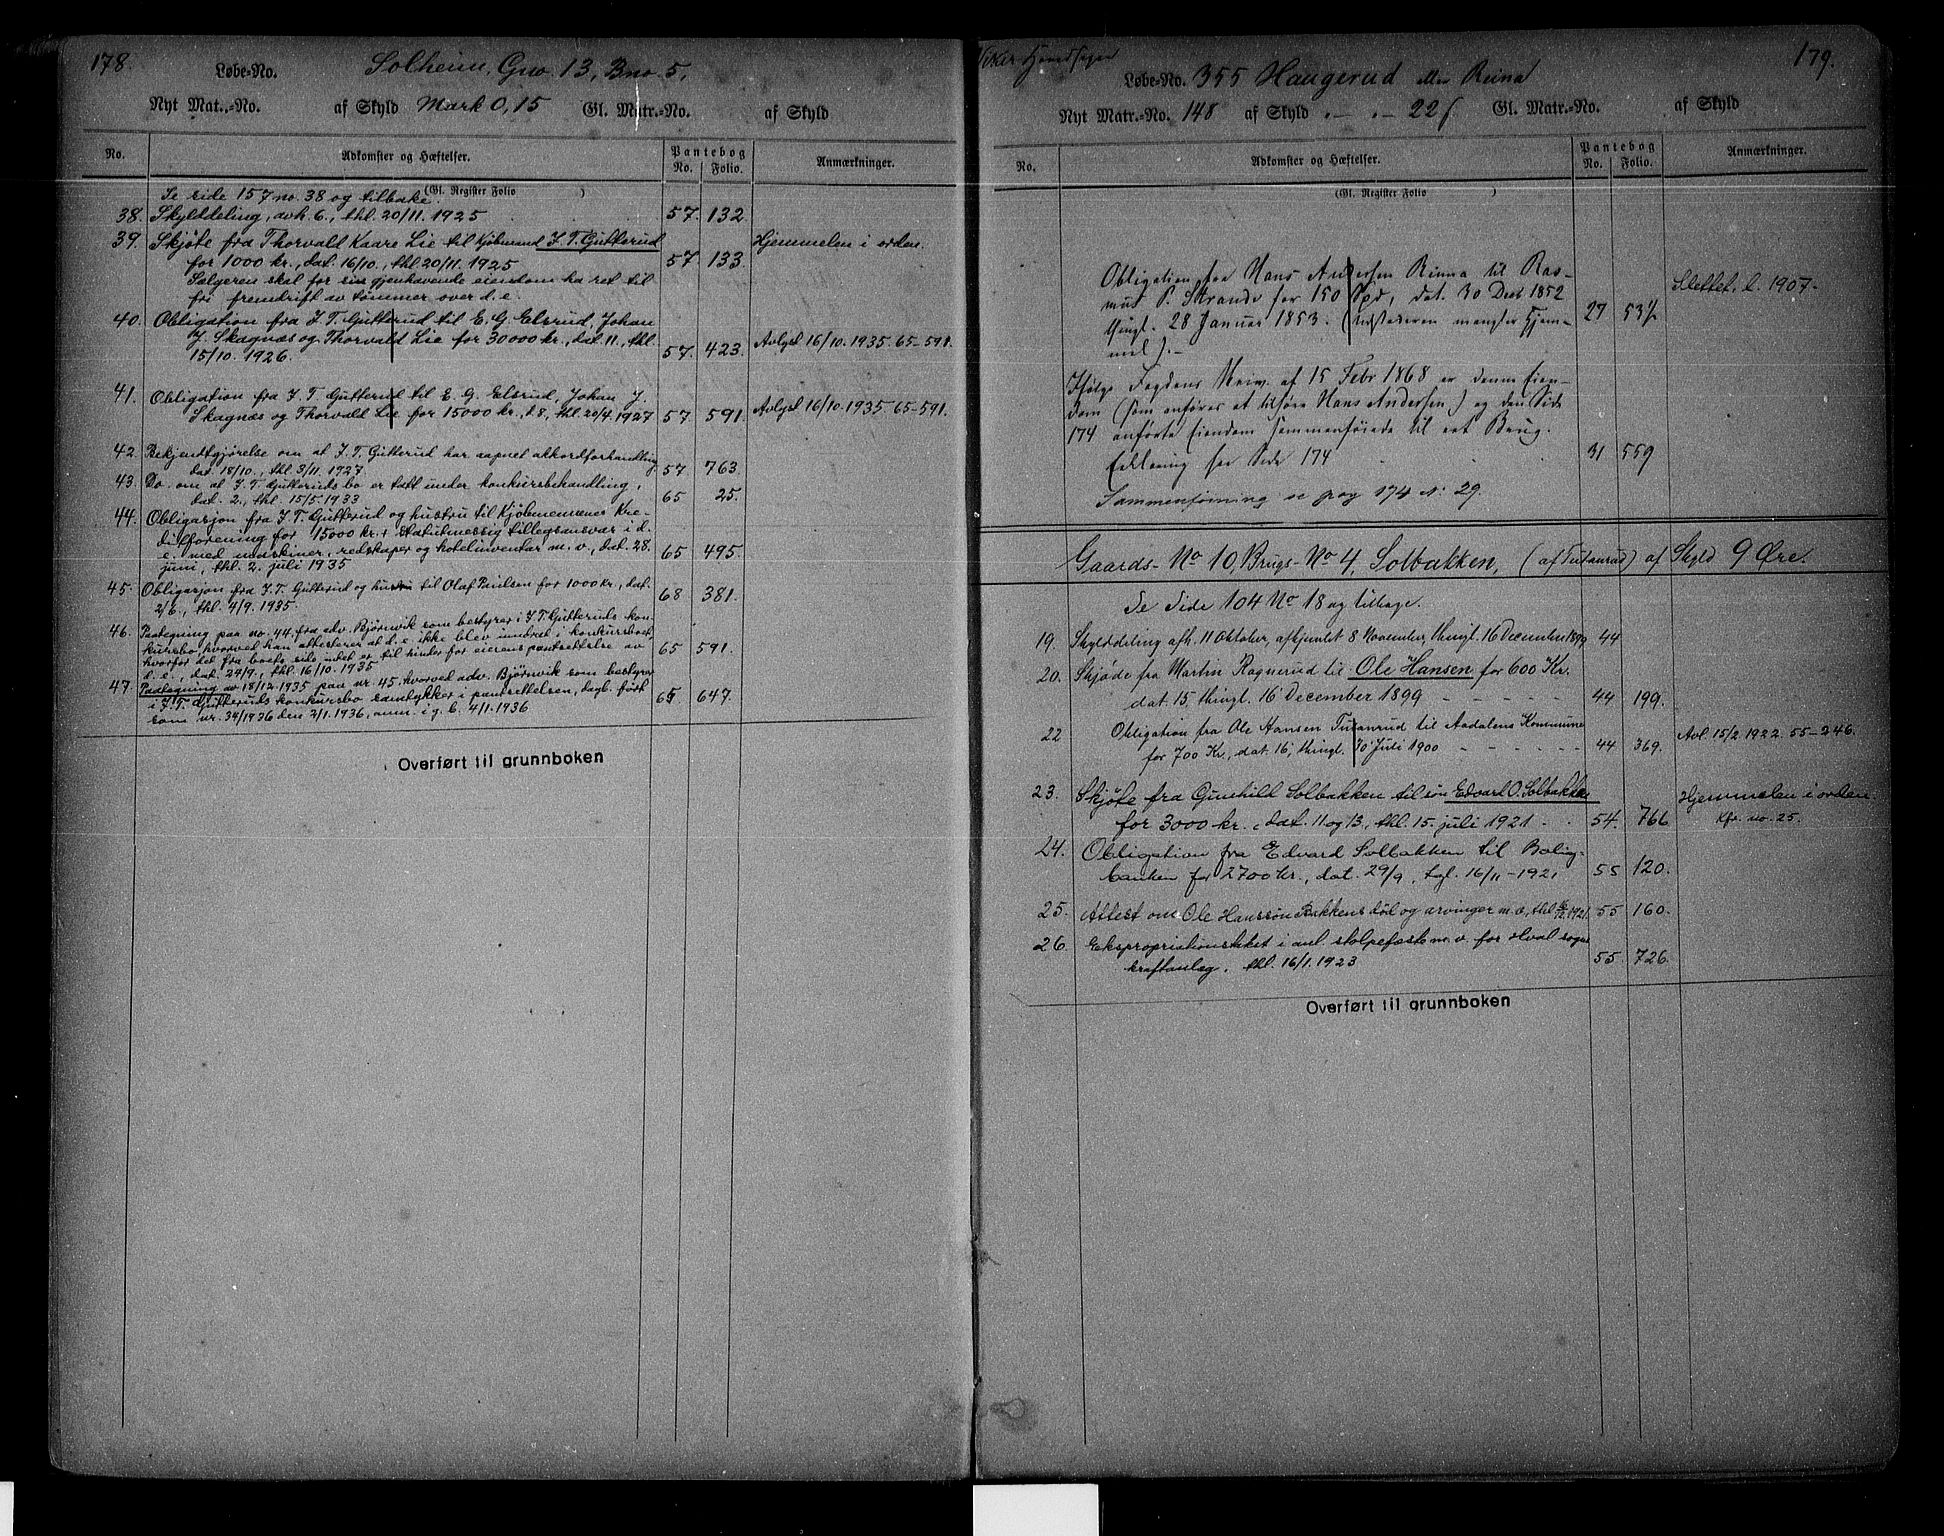 178.
Løbe-No. Solheim, Gno. 13, Bno. 5,
Nyt Mat.-No. af Skyld Mark 0,15 Gl. Matr.-No. af Skyld
No. Adkomster og Hæftelser. Pantebog No. Folio. Anmærkninger.
(Gl. Register Folio )
Se side 157 no. 38 og tilbake.
38. Skylddeling, avh. 6., thl. 20/11. 1925 57. 132.
39. Skjøte fra Thorvald Kaare Lie til Kjøbmand J. T. Gutterud Hjemmelen i orden.
for 1000 kr., dat. 16/10., thl. 20/11. 1925 57. 133.
Sælgeren skal for sin gjenhavende eiendom ha ret til
fri fremdrift av tømmer over d. e.
40. Obligation fra J. T. Gutterud til E. G. Elsrud, Johan
J. Skagnæs og Thorvald Lie for 30000 kr., dat. 11., thl.
15/10. 1926. 57. 423. Avlyst 16/10. 1935. 65-591.
41. Obligation fra J. T. Gutterud til E. G. Elsrud, Johan J.
Skagnæs og Thorvald Lie for 15000 kr., d. 8., thl. 20/4. 1927 57. 591. Avlyst 16/10. 1935. 65-591.
42. Bekjendtgjørelse om at J. T. Gutterud har aapnet akkordforhandling,
dat. 18/10., thl. 3/11. 1927. 57. 763.
43. Do. om at J. T. Gutteruds bo er tatt under konkursbehandling,
dat. 2., thl. 15/5. 1933 65 25.
44. Obligasjon fra J. T. Gutterud og hustru til Kjøbmennenes Kre-
ditforening for 15000 kr. + statutmessig tillegsansvar i d.
e. med maskiner, redskaper og hotelinventar m. v., dat. 28.
juni, thl. 2. juli 1935 65 495.
45. Obligasjon fra J. T. Gutterud og hustru til Olaf Paulsen for 1000 kr., dat.
2/6., thl. 4/9. 1935. 68 381.
46. Paategning paa no. 44. fra adv. Bjørnvik som bestyrer i J. T. Gutteruds kon-
kursbo, hvorved han attesterer at d. e. ikke blev inndratt i konkursboet
hvorfor det fra boets side intet er til hinder for eierens pantsettelse av
d. e., dat. 24/9., thl. 16/10. 1935 65 591.
47. Paategning av 18/12. 1935 paa nr. 45, hvorved adv. Bjørnvik som bestyrer
i J. T. Gutteruds konkursbo samtykker i pantsettelsen, dagb. ført
som nr. 34/1936 den 2/1. 1936, anm. i g. b. 4/1. 1936 65 647.
Overført til grunnboken
179.
Løbe-No. 355 Haugerud eller Reina
Nyt Matr.-No. 148 af Skyld . — . — 22 ſ Gl. Matr.-No. af Skyld
No. Adkomster og Hæftelser. Pantebog No. Folio. Anmærkninger.
(Gl. Register Folio )
Obligation fra Hans Andersen Rinna til Ras-
mus P. Strande for 150 Spd, dat. 30 Decbr 1852 Slettet. l. 1907.
thingl. 28 Januar 1853. (Udstederen mangler Hjem- 27
mel).
Ifølge Fogdens Skriv. af 15 Febr 1868 er denne Eien-
dom (som anføres at tilhøre Hans Andersen) og den Side
174 anførte Eiendom sammenføiede til eet Brug.
Erklæring see Side 174 31 559
Sammenføining se pag 174 N. 29.
Gaards-No 10, Brugs-No 4, Solbakken, (af Tutanrud) af Skyld 9 Øre.
Se Side 104 No 18 og tilbage.
19 Skylddeling afh. 11 Oktober, afhjemlet 8 November, thingl. 16 December 1899 44
20. Skjøde fra Martin Ragnerud til Ole Hansen for 600 Kr.
dat. 15, thingl. 16 December 1899 44 199.
22 Obligation fra Ole Hansen Tutanrud til Aadalens Kommune
for 700 Kr., dat. 16, thingl. Juli 1900 44 369. Avl. 15/2 1922. 55-246.
23. Skjøte fra Gunhild Solbakken til søn Edvard O. Solbakken Hjemmelen i orden.
for 3000 kr., dat. 11 og 13., thl. 15. juli 1921 54. 766 Kfr. no. 25.
24. Obligation fra Edvard Solbakken til Bolig-
banken for 2700 kr., dat. 29/9, tgl. 16/11-1921 55 120.
25. Attest om Ole Hanssøn Bakkens död og arvinger m. v., thl. 1921. 55 160.
26. Ekspropriationstiket i anl. stolpefæste m. v. for Hval sogns
kraftanlæg. thl. 16/1. 1923 55. 726.
Overført til grunnboken